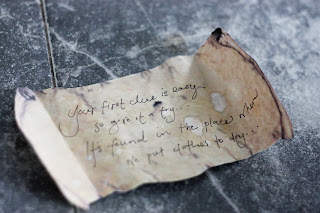 Your first clue is easy..
so give it a try...
It's found in the place where
we put clothes to dry...